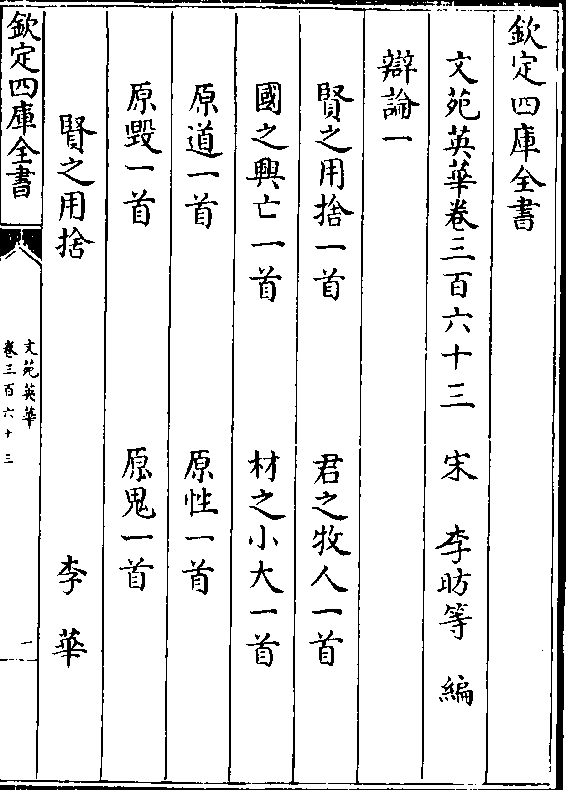 欽定四庫全書
文苑英華卷三百六十三 宋 李昉等 編
辯論一
賢之用捨一首 君之牧人一首
國之興亡一首 材之小大一首
原道一首 原性一首
原毀一首 原鬼一首
賢之用捨 李華
欽定四庫全書
文苑英華
卷三百六十三
一